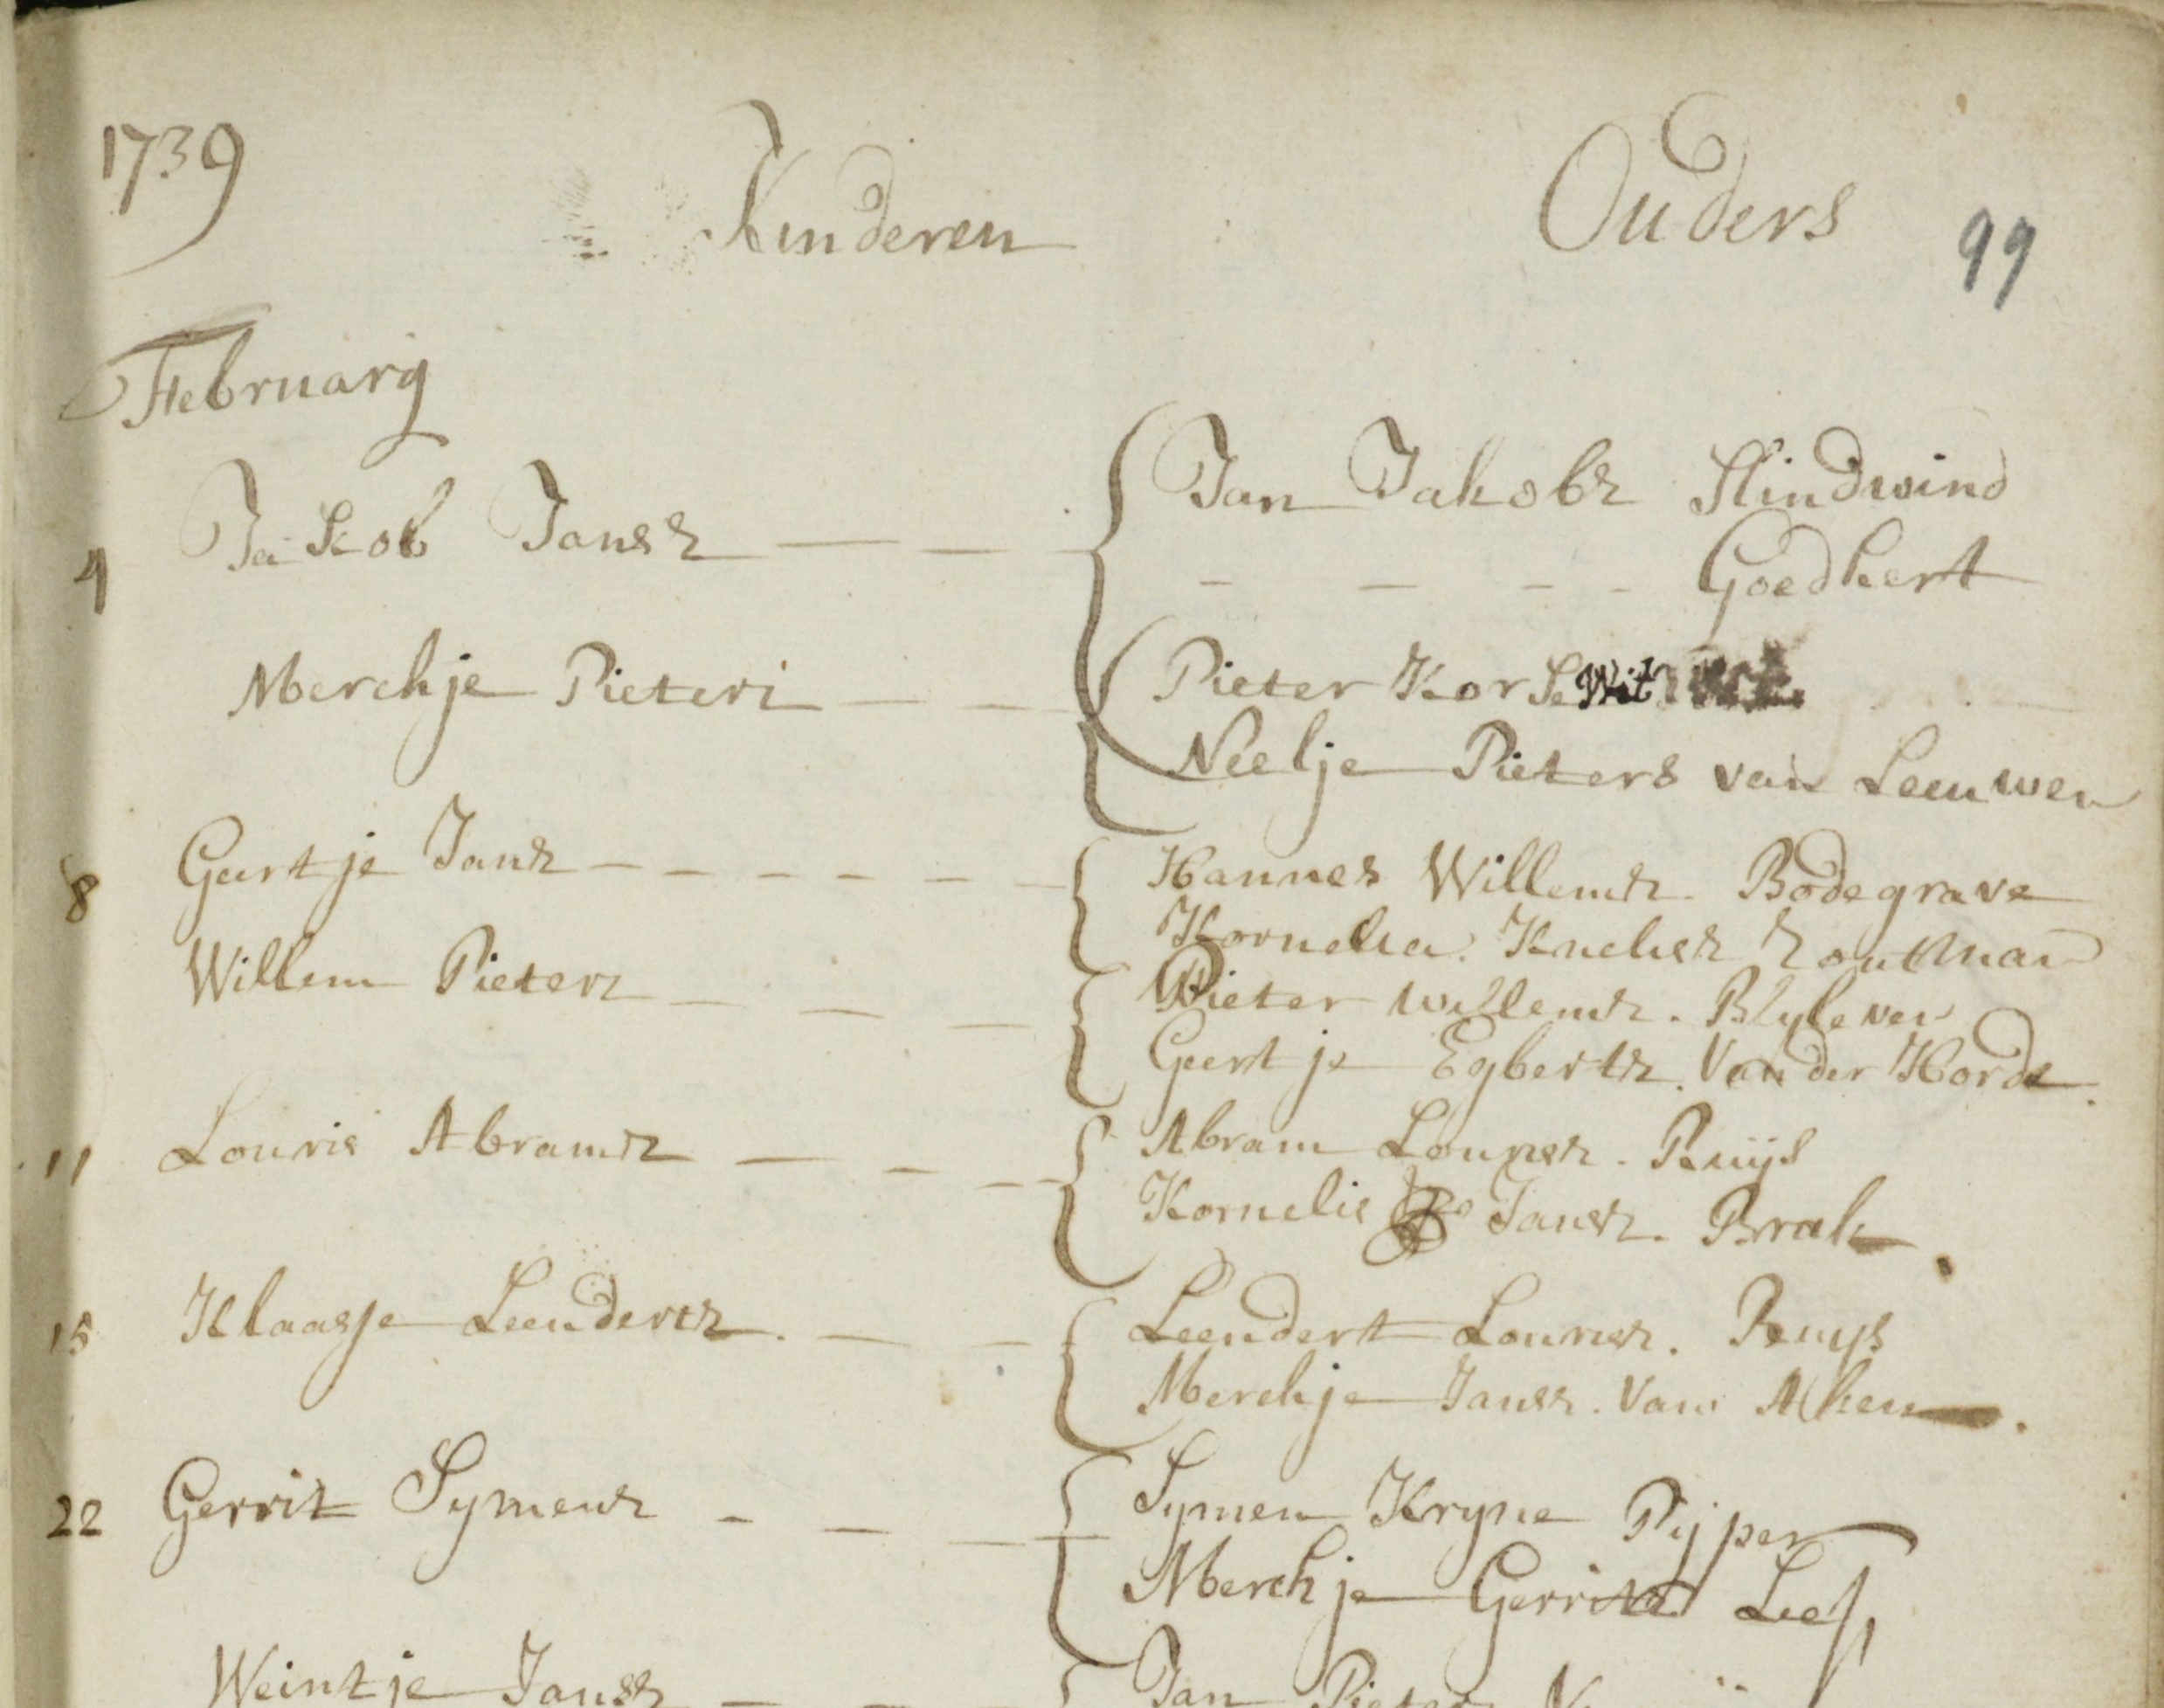 1739
Kinderen
Ouders
99
February
4 Jakob Jansz
Jan Jakobz Slindwind
Goedhert
Merchje Pieters
Pieter Kor Se Wit
Neelje Pieters van Leeuwen
8 Geertje Jansz
Hannes Willemsz. Bodegrave
Kornelia Knelisz Zoutman
Willem Pietersz
Pieter Willemsz. Blyleven
Geertje Egbertsz. Van der Horde
11 Louris Abramsz
Abram Lourisz. Ruijs
Kornelis Jansz. Brak
15 Klaasje Leendertsz.
Leendert Lourisz. Ruys
Merchje Jansz. Van Aken
22 Gerrit Symensz
Symen Kryne Pijper
Merchje Gerrits
Weintje Jansz
Jan Pieter